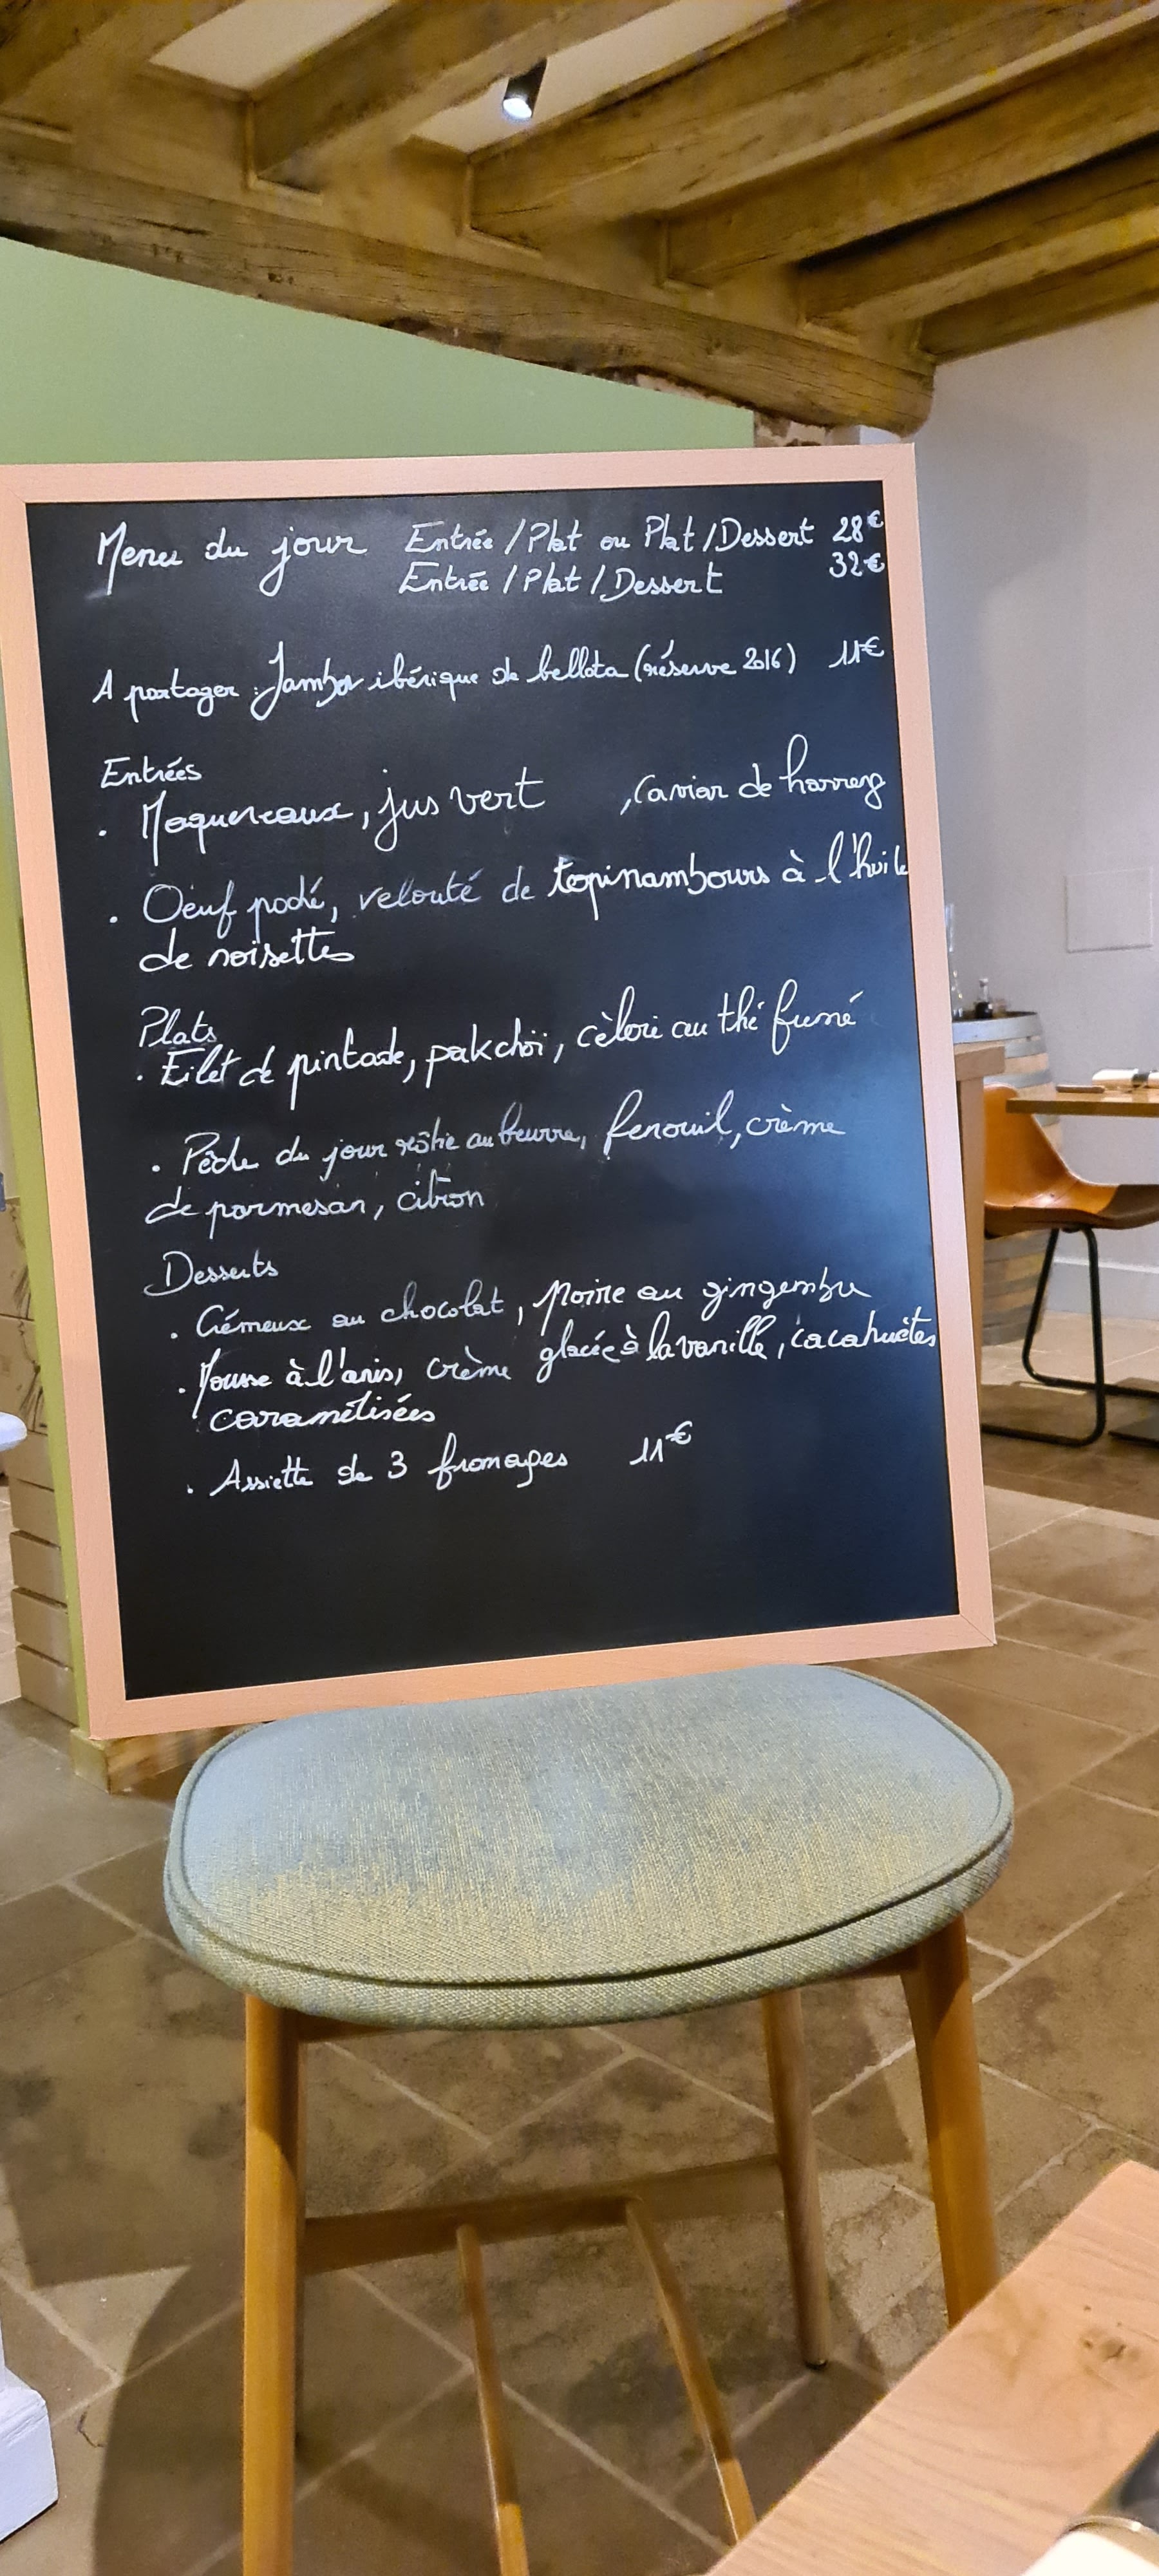 Menu du jour Entrée / Plat ou Plat / Dessert 28€
Entrée / Plat / Dessert 32€
A partager : Jambon ibérique de bellota (réserve 2016) 11€
Entrées
. Maquereaux, jus vert , caviar de hareng
. Oeuf poché, velouté de topinambours à l'huile
de noisettes
Plats
. Filet de pintade, pakchoï, cèleri au thé fumé
. Pêche du jour rôtie au beurre, fenouil, crème
de parmesan, citron
Desserts
. Crémeux au chocolat, poire au gingembre
. Mousse à l'anis, crème glacée à la vanille, cacahuètes
caramélisées
. Assiette de 3 fromages 11€